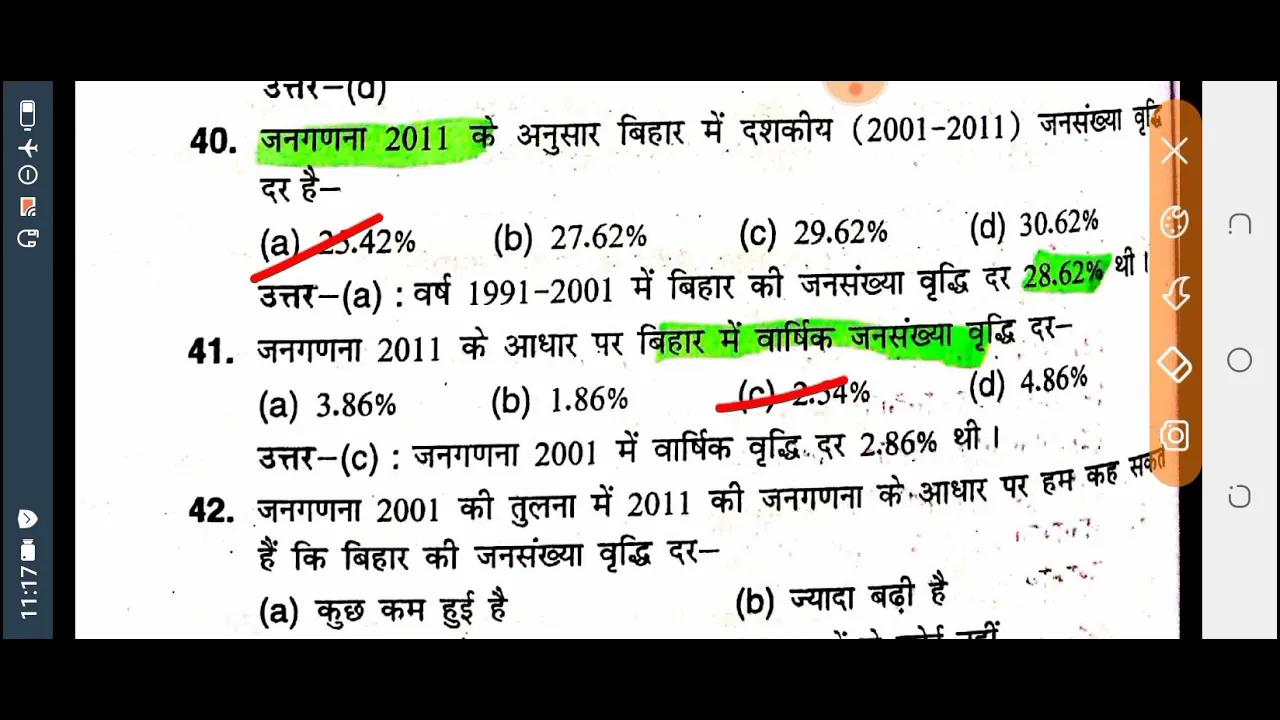 उत्तर–(d)
40. जनगणना 2011 के अनुसार बिहार में दशकीय (2001-2011) जनसंख्या वृद्धि
दर है–
(a) 25.42% (b) 27.62% (c) 29.62% (d) 30.62%
उत्तर–(a) : वर्ष 1991-2001 में बिहार की जनसंख्या वृद्धि दर 28.62% थी।
41. जनगणना 2011 के आधार पर बिहार में वार्षिक जनसंख्या वृद्धि दर–
(a) 3.86% (b) 1.86% (c) 2.54% (d) 4.86%
उत्तर–(c) : जनगणना 2001 में वार्षिक वृद्धि दर 2.86% थी।
42. जनगणना 2001 की तुलना में 2011 की जनगणना के आधार पर हम कह सकते
हैं कि बिहार की जनसंख्या वृद्धि दर–
(a) कुछ कम हुई है (b) ज्यादा बढ़ी है
11:17